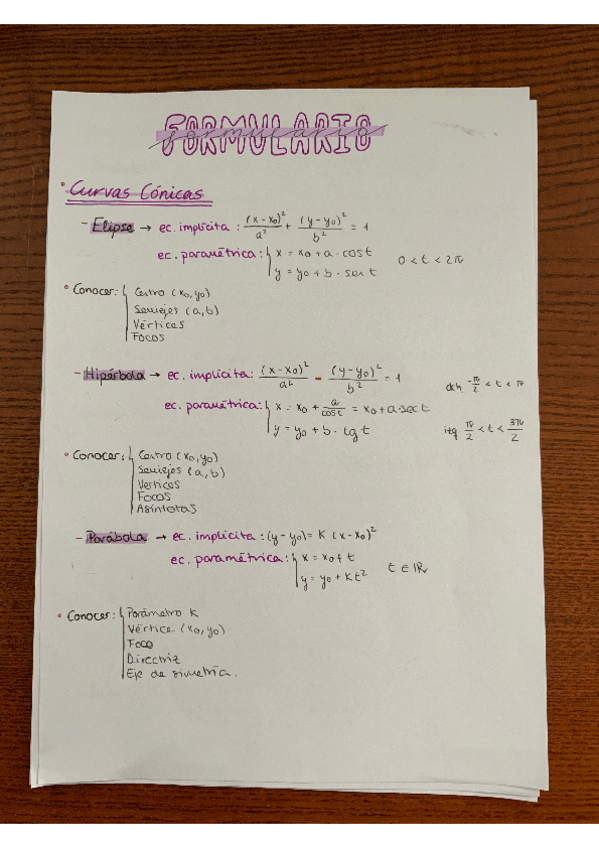 FORMULARIO
formulario
• Curvas Cónicas
- Elipse → ec. implícita : (x-x0)²/a² + (y-y0)²/b² = 1
ec. paramétrica : { x = x0 + a · cost
y = y0 + b · sent 0 < t < 2π
• Conocer : { Centro (x0, y0)
Semiejes (a, b)
Vértices
Focos
- Hipérbola → ec. implícita : (x-x0)²/a² - (y-y0)²/b² = 1
ec. paramétrica : { x = x0 + a/cost = x0 + a·sect dch -π/2 < t < π
y = y0 + b · tg t izq π/2 < t < 3π/2
• Conocer : { Centro (x0, y0)
Semiejes (a, b)
Vertices
Focos
Asíntotas
- Parábola → ec. implícita : (y - y0) = K (x - x0)²
ec. paramétrica : { x = x0 + t
y = y0 + Kt² t ∈ IR
• Conocer : { Parámetro K
Vértice (x0, y0)
Foco
Directriz
Eje de simetría.